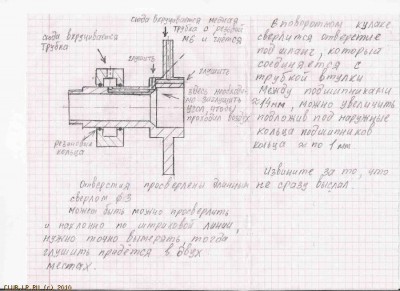 сюда вкручивается
трубка
сюда вкручивается медная
трубка с резьбой
М6 и паяется
глушить
глушить
здесь
заглушить
чтобы
проходил воздух
резиновые
кольца
В поворотном кулаке
сверлится отверстие
под шланг, который
соединяется с
трубкой втулки
Между подшипниками
14мм, можно увеличить
подложив под наружные
кольца подшипников
кольца по 1 мм
Извините за то, что
не сразу выслал.
Отверстия просверлены длинным
сверлом ф3
может быть можно просверлить
и наклонно по штриховой линии,
нужно только вымерять, тогда
глушить придётся в двух
местах.
CLUB-LR.RU (c) 2010